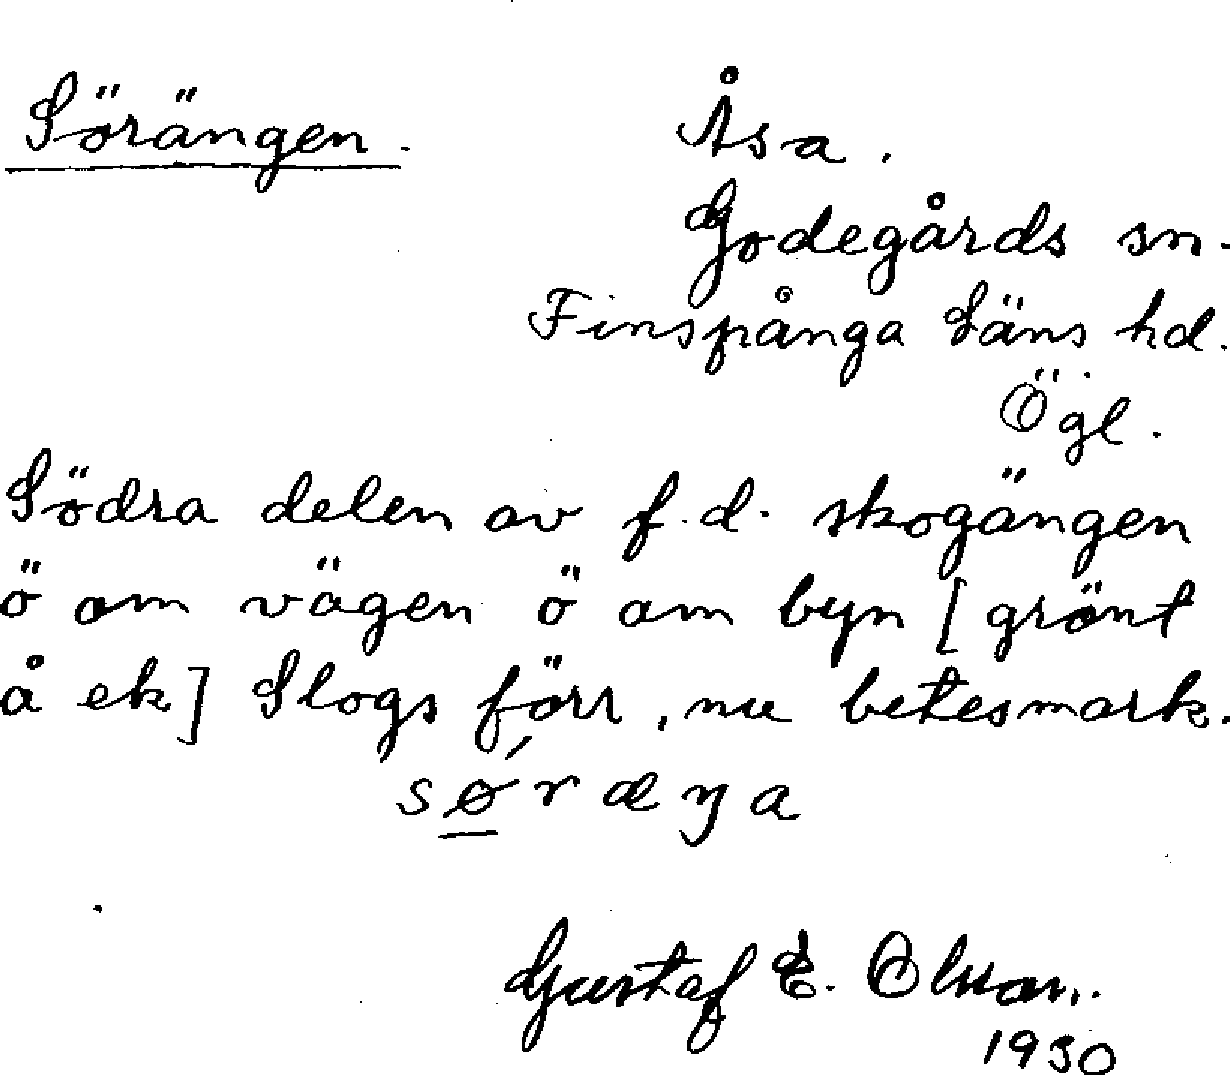 Sörängen.
Åsa.
Godegårds sn.
Finspånga läns hd.
Ögl.
Södra delen av f.d. skogängen
ö om vägen ö om byn [grönt
å ek] Slogs förr, nu betesmark.
sǿ̱ræŋa
Gustaf E. Olsson.
1930